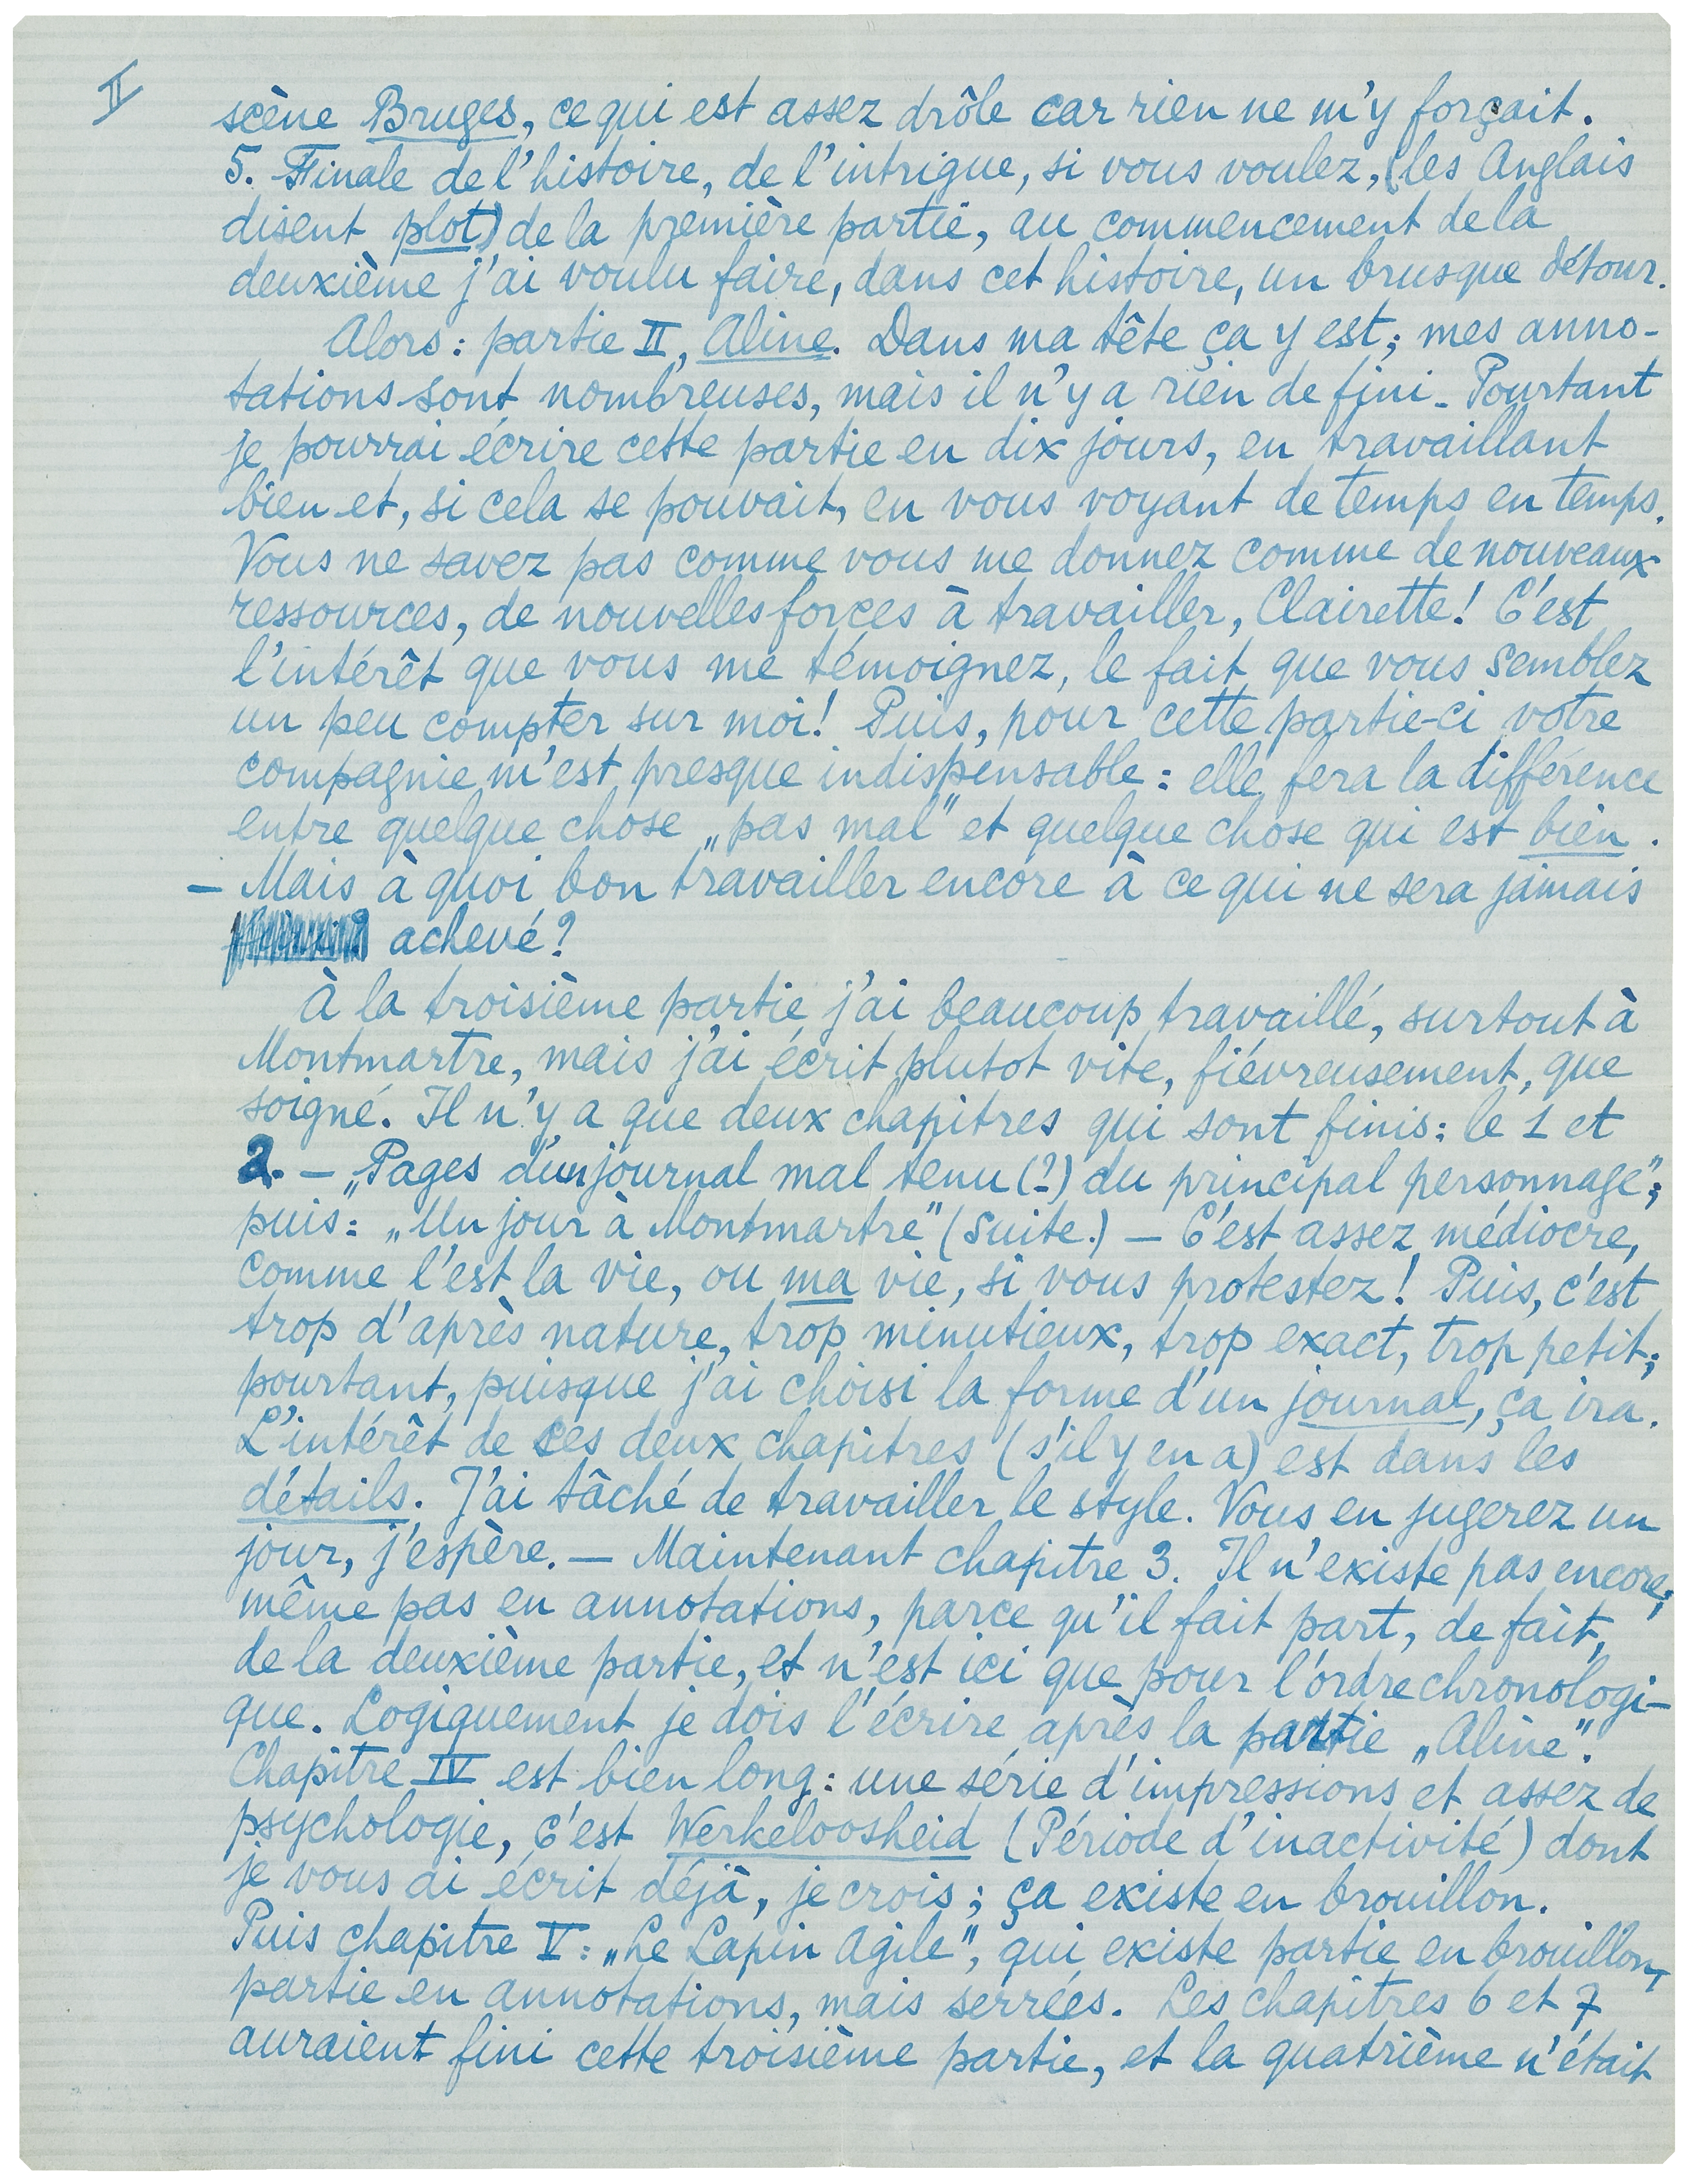 II
scène Bruges, ce qui est assez drôle car rien ne m'y forçait.
5. Finale de l'histoire, de l'intrigue, si vous voulez, (les Anglais
disent plot) de la première partie, au commencement de la
deuxième j'ai voulu faire, dans cet histoire, un brusque détour.
Alors: partie II, Aline. Dans ma tête ça y est; mes anno-
tations sont nombreuses, mais il n'y a rien de fini. Pourtant
je pourrai écrire cette partie en dix jours, en travaillant
bien et, si cela se pouvait, en vous voyant de temps en temps.
Vous ne savez pas comme vous me donnez comme de nouveaux
ressources, de nouvelles forces à travailler, Clairette! C'est
l'intérêt que vous me témoignez, le fait que vous semblez
un peu compter sur moi! Puis, pour cette partie-ci votre
compagnie m'est presque indispensable: elle fera la différence
entre quelque chose „pas mal" et quelque chose qui est bien.
— Mais à quoi bon travailler encore à ce qui ne sera jamais
achevé?
À la troisième partie j'ai beaucoup travaillé, surtout à
Montmartre, mais j'ai écrit plutot vite, fiévreusement, que
soigné. Il n'y a que deux chapitres qui sont finis: le 1 et
2. — „Pages d'un journal mal tenu (?) du principal personnage";
puis: „Un jour à Montmartre" (suite.) — C'est assez médiocre,
comme l'est la vie, ou ma vie, si vous protestez! Puis, c'est
trop d'après nature, trop minutieux, trop exact, trop petit;
pourtant, puisque j'ai choisi la forme d'un journal, ça ira.
L'intérêt de ces deux chapitres (s'il y en a) est dans les
détails. J'ai tâché de travailler le style. Vous en jugerez un
jour, j'espère. — Maintenant chapitre 3. Il n'existe pas encore,
même pas en annotations, parce qu'il fait part, de fait,
de la deuxième partie, et n'est ici que pour l'ordre chronologi-
que. Logiquement je dois l'écrire après la partie „Aline".
Chapître IV est bien long: une série d'impressions et assez de
psychologie, c'est Werkeloosheid (Période d'inactivité) dont
je vous ai écrit déjà, je crois; ça existe en brouillon.
Puis chapitre V: „Le Lapin Agile", qui existe partie en brouillon,
partie en annotations, mais serrées. Les chapitres 6 et 7
auraient fini cette troisième partie, et la quatrième n'était